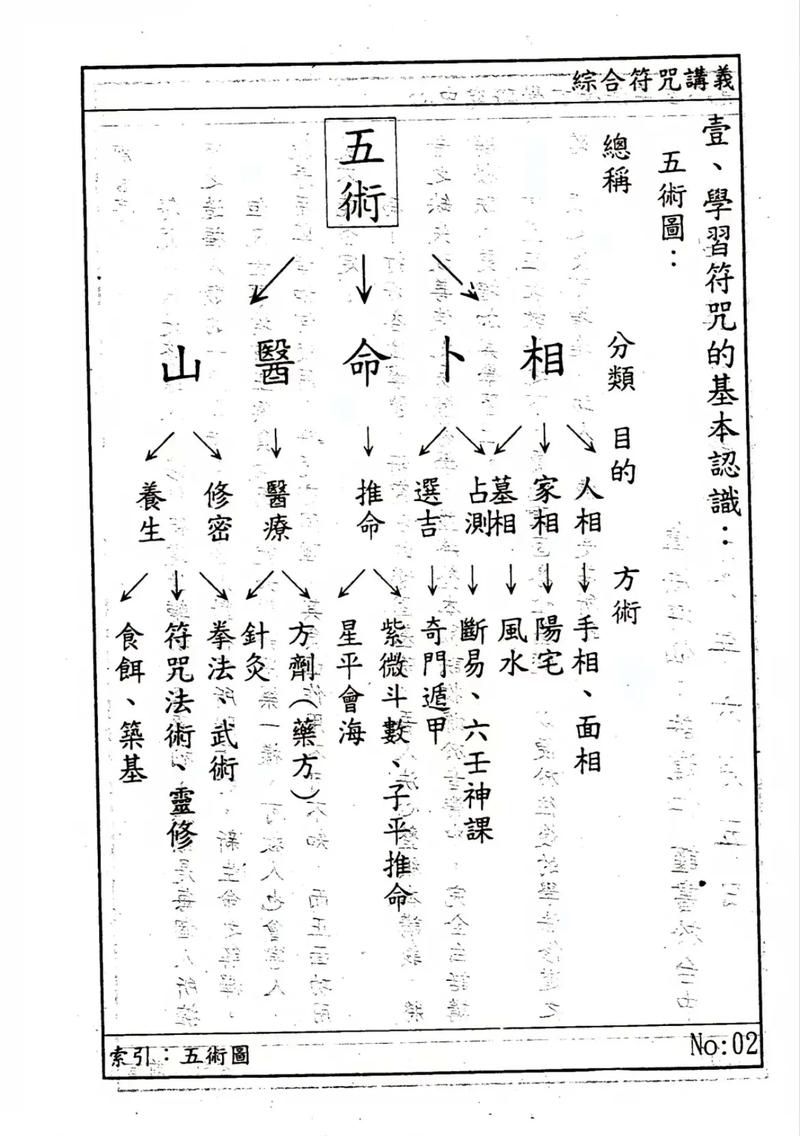 綜合符咒講義
壹、學習符咒的基本認識：
五術圖：
總稱
五術
分類
相
卜
命
醫
山
目的
人相
家相
墓相
占測
選吉
推命
醫療
修密
養生
方術
手相、面相
陽宅
風水
斷易、六壬神課
奇門遁甲
紫微斗數、子平推命
星平會海
方劑（藥方）
針灸
拳法、武術
符咒法術、靈修
食餌、築基
索引：五術圖
No:02